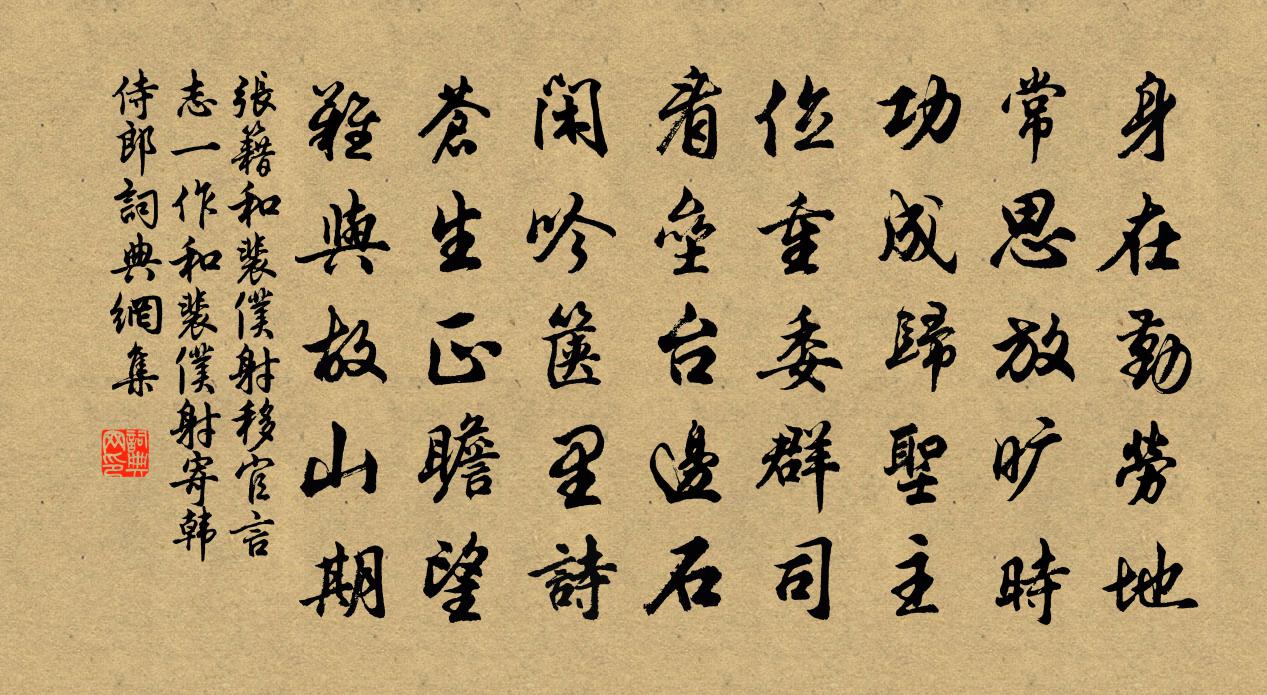 身在勤勞地
常思放旷時
功成歸聖主
位重委群司
看壘台邊石
閑吟篋里詩
蒼生正瞻望
難與故山期
張籍和裴僕射移官言
志一作和裴僕射寄韩
侍郎詞典網集
詞典
网印